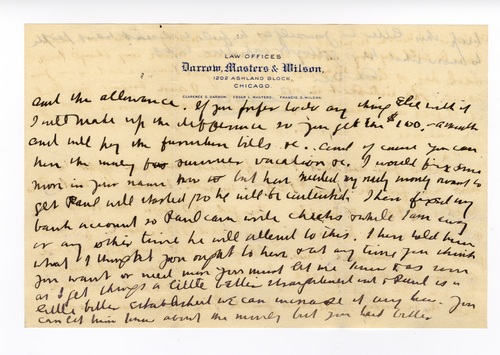 LAW OFFICES
Darrow, Masters & Wilson,
1202 ASHLAND BLOCK,
CHICAGO.
CLARENCE S. DARROW. EDGAR L. MASTERS. FRANCIS S. WILSON.
and the allowance. If you prefer to do any thing Else with it
I will make up the difference so you get the $100.- a month
and will pay the furniture bills &c.. and of course you can
have the money for summer vacation &c. I would fix some
more in your name now but have needed my ready money want to
get Paul well started so he will be contented. I have fixed my
bank account so Paul can write checks while I am away
or any other time he will attend to this. I have told him
what I thought you ought to have & at any time you think
you want or need more you must let me know & as soon
as I get things a little better straightened out & Paul is a
little better established we can manage it any how. You
can let him know about the money but you had better